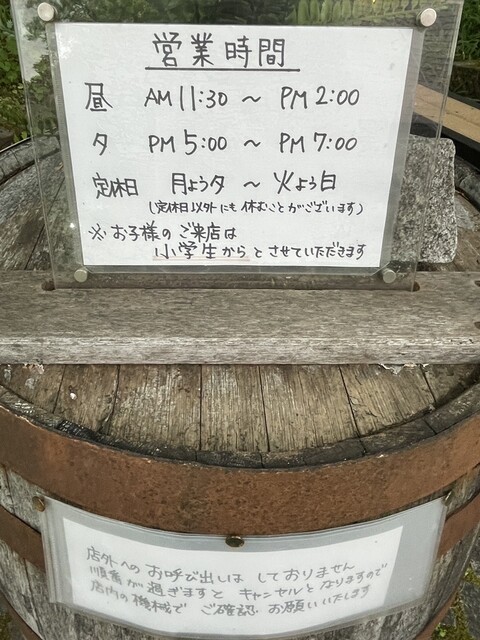 営業時間
昼 AM 11:30 ~ PM 2:00
夕 PM 5:00 ~ PM 7:00
定休日 月よう夕 ~ 火よう日
(定休日以外にも休むことがございます)
※お子様のご来店は
小学生からとさせていただきます
店外へのお呼び出しはしておりません
順番が過ぎますとキャンセルとなりますので
店内の機械でご確認お願いいたします